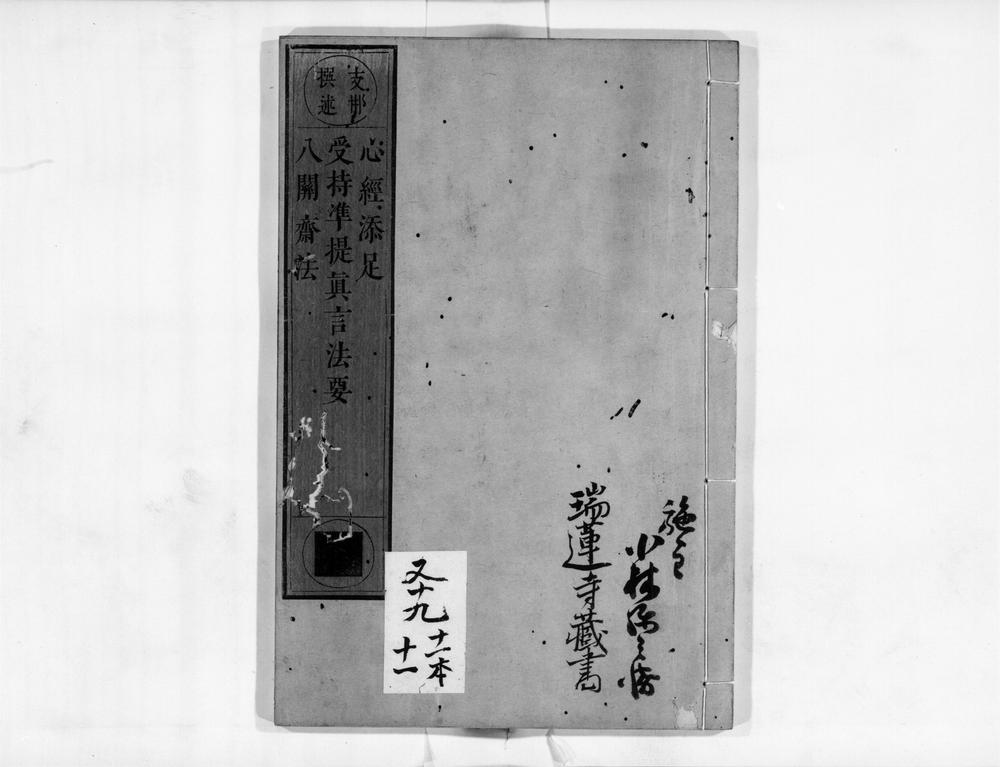 支那
撰述
心經添足
受持準提眞言法要
八關齋法
施主
小林
瑞蓮寺藏書
又十九
十一本
十一